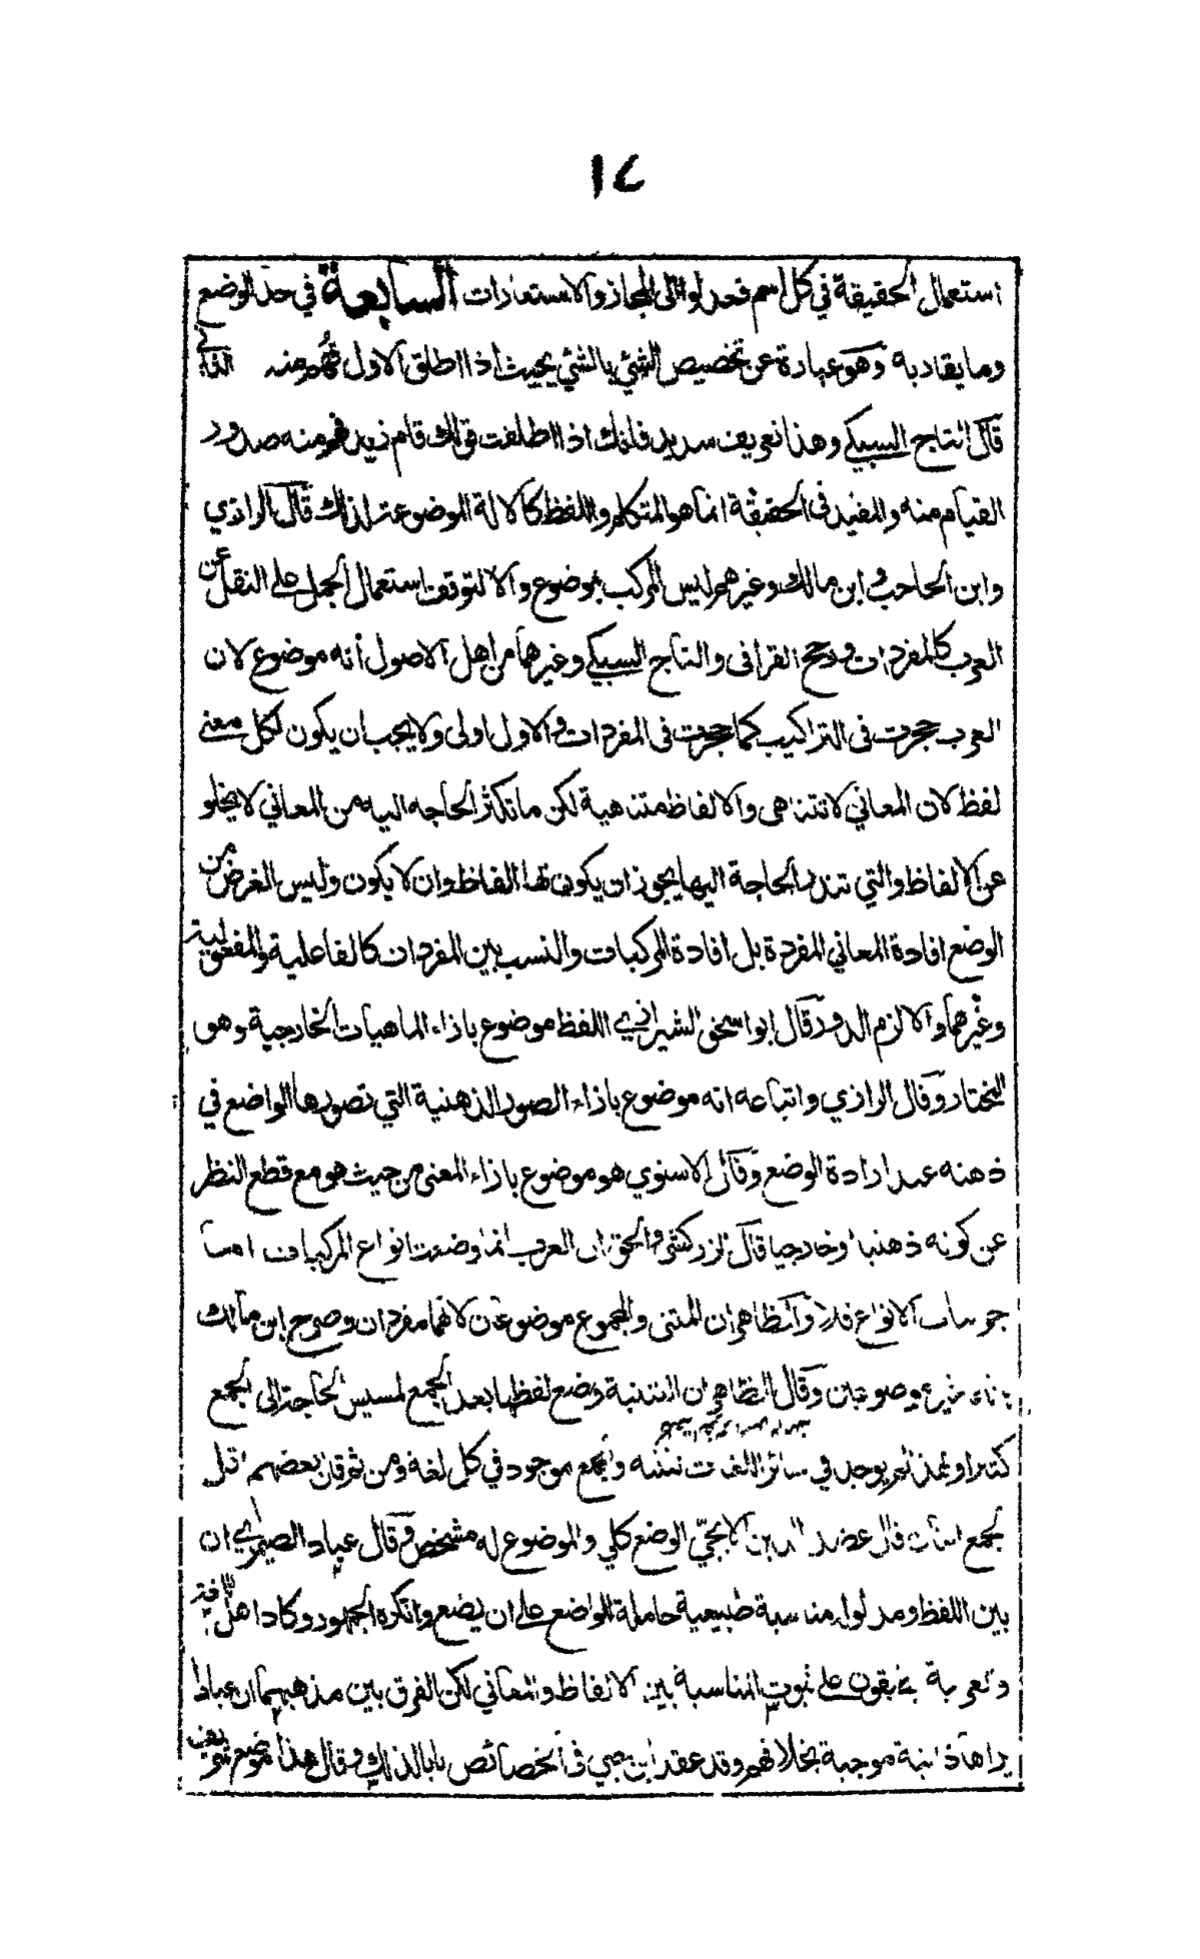 ١٤
استعمال الحقيقة في كل اسم فعدلوا الى المجاز والاستعارات السابعة في حد الوضع
وما يقاربه وهو عبارة عن تخصيص الشئ بالشئ بحيث اذا اطلق الاول فهم منه الثاني
قال التاج السبكي وهذا تعريف سديد فانك اذا اطلقت قولك قام زيد فهم منه صدور
القيام منه والمفيد في الحقيقة انما هو المتكلم واللفظ كالالة الموضوعة لذلك قال الرازي
وابن الحاجب وابن مالك وغيرهم ليس المركب بموضوع والا لتوقف استعمال الجمل على النقل عن
العرب كالمفردات ورجح القرافي والتاج السبكي وغيرهما من اهل الاصول انه موضوع لان
العرب حجرت في التراكيب كما حجرت في المفردات والاول اولى ولا يجب ان يكون لكل معنى
لفظ لان المعاني لا تتناهى والالفاظ متناهية لكن ما تكثر الحاجه اليه من المعاني لا يخلو
عن الالفاظ والتي تندر الحاجة اليها يجوز ان يكون لها الفاظ وان لا يكون وليس الغرض من
الوضع افادة المعاني المفردة بل افادة المركبات والنسب بين المفردات كالفاعلية والمفعولية
وغيرهما والا لزم الدور قال ابو اسحق الشيرازي اللفظ موضوع بازاء الماهيات الخارجية وهو
المختار وقال الرازي واتباعه انه موضوع بازاء الصور الذهنية التي تصورها الواضع في
ذهنه عند ارادة الوضع وقال الاسنوي هو موضوع بازاء المعنى من حيث هو مع قطع النظر
عن كونه ذهنيا او خارجيا قال الزركشي والحق ان العرب انما وضعت انواع المركبات اما
جزئيات الانواع فلا والظاهر ان المثنى والمجموع موضوعان لانهما مفردان وصرح ابن مالك
بانهما غير موضوعين وقال الظاهر ان التثنية وضع لفظها بعد الجمع لمسيس الحاجة الى الجمع
كثيرا ولهذا لم يوجد في سائر اللغات تثنية والجمع موجود في كل لغة ومن ثم قال بعضهم اقل
الجمع اثنان قال عضد الدين الايجي الوضع كلي والموضوع له مشخص وقال عباد الصيمري ان
بين اللفظ ومدلوله مناسبة طبيعية حاملة للواضع على ان يضع وانكره الجمهور وكاد اهل اللغة
والعربية يطبقون على ثبوت المناسبة بين الالفاظ والمعاني لكن الفرق بين مذهبهما ان عبادا
يراها ذاتية موجبة بخلافهم وقد عقد ابن جني في الخصائص بابا لذلك وقال هذا موضع شريف